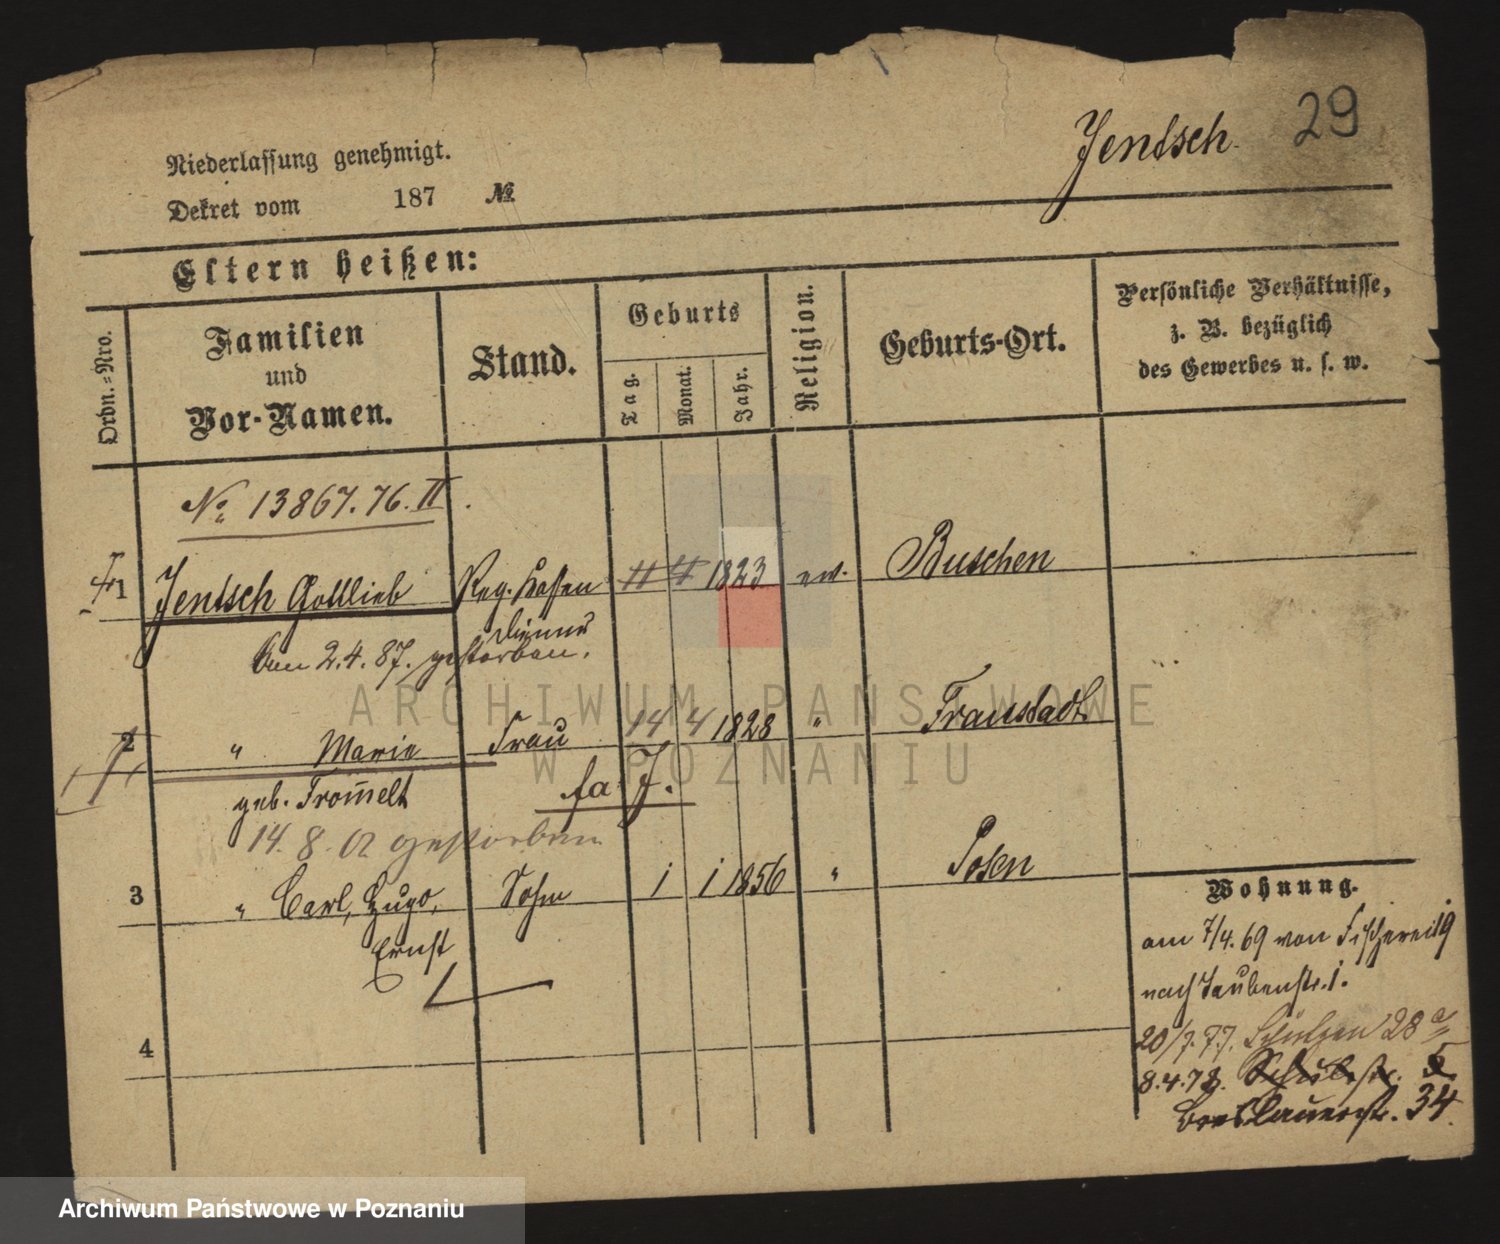 29
Jentsch
Niederlassung genehmigt.
Dekret vom 187 №
Eltern heißen:
Ordn.=Nro.
Familien
und
Vor-Namen.
Stand.
Geburts
Tag.
Monat.
Jahr.
Religion.
Geburts-Ort.
Persönliche Verhältnisse,
z. B. bezüglich
des Gewerbes u. s. w.
No 13867.76.II.
1 Jentsch Gottlieb Reg. Kassen 1823 ev. Buschen
Diener
Am 2.4.87. gestorben.
2 " Marie Frau 14 4 1828 " Fraustadt
geb. Trom̄elt
fa J.
14. 8. 02 gestorben
3 " Carl, Hugo, Sohn 1 1 1856 " Posen
Ernst
4
Wohnung.
am 7/4. 69 von Fischerei 19
nach Taubenstr. 1.
20/7. 77. Schützen 28 a
8.4.78. Schulstr. 5
Breslauerstr. 34.
ARCHIWUM PAŃSTWOWE
W POZNANIU
Archiwum Państwowe w Poznaniu